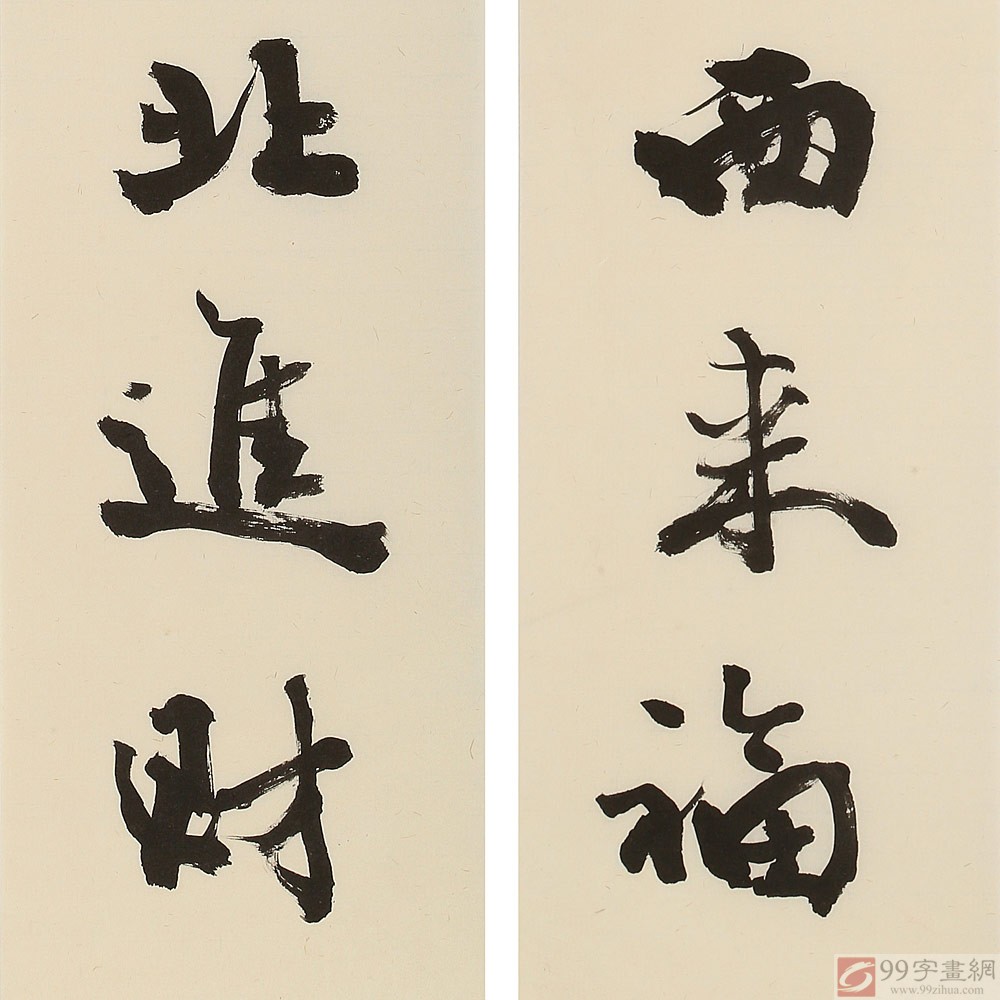 西来福
北進財
99字畫網
www.99zihua.com